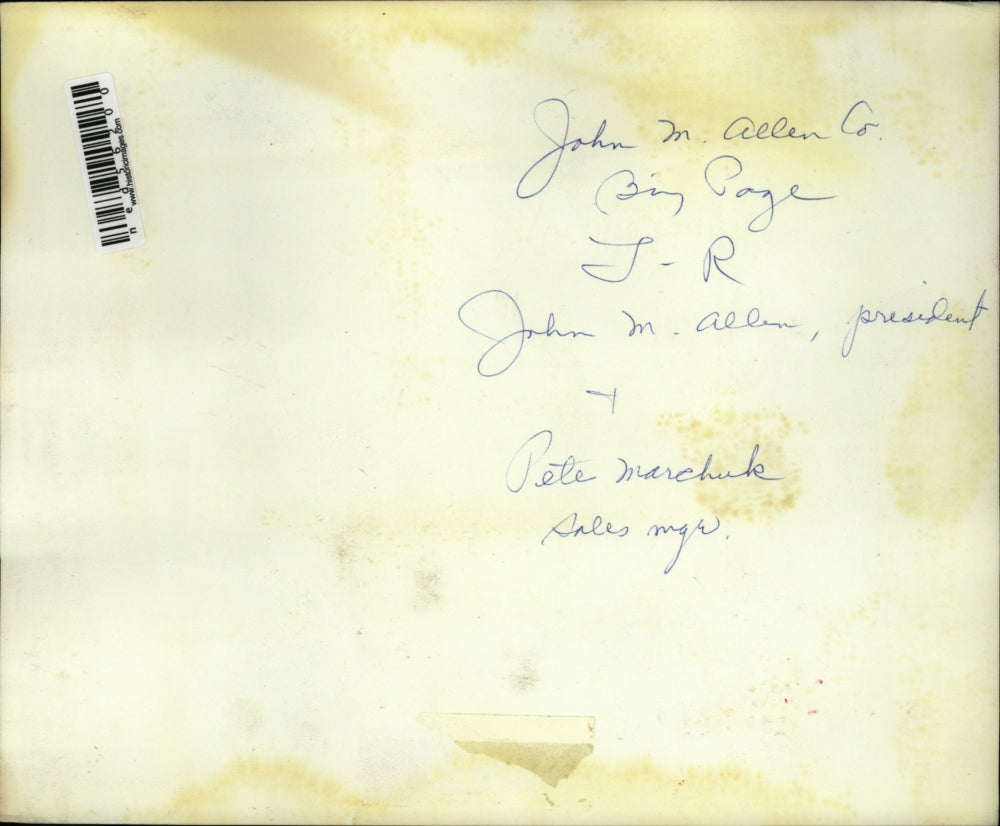 John M. Allen Co.
Biz Page
L - R
John M. Allen, president
+
Pete Marchuk
sales mgr.
www.historicimages.com